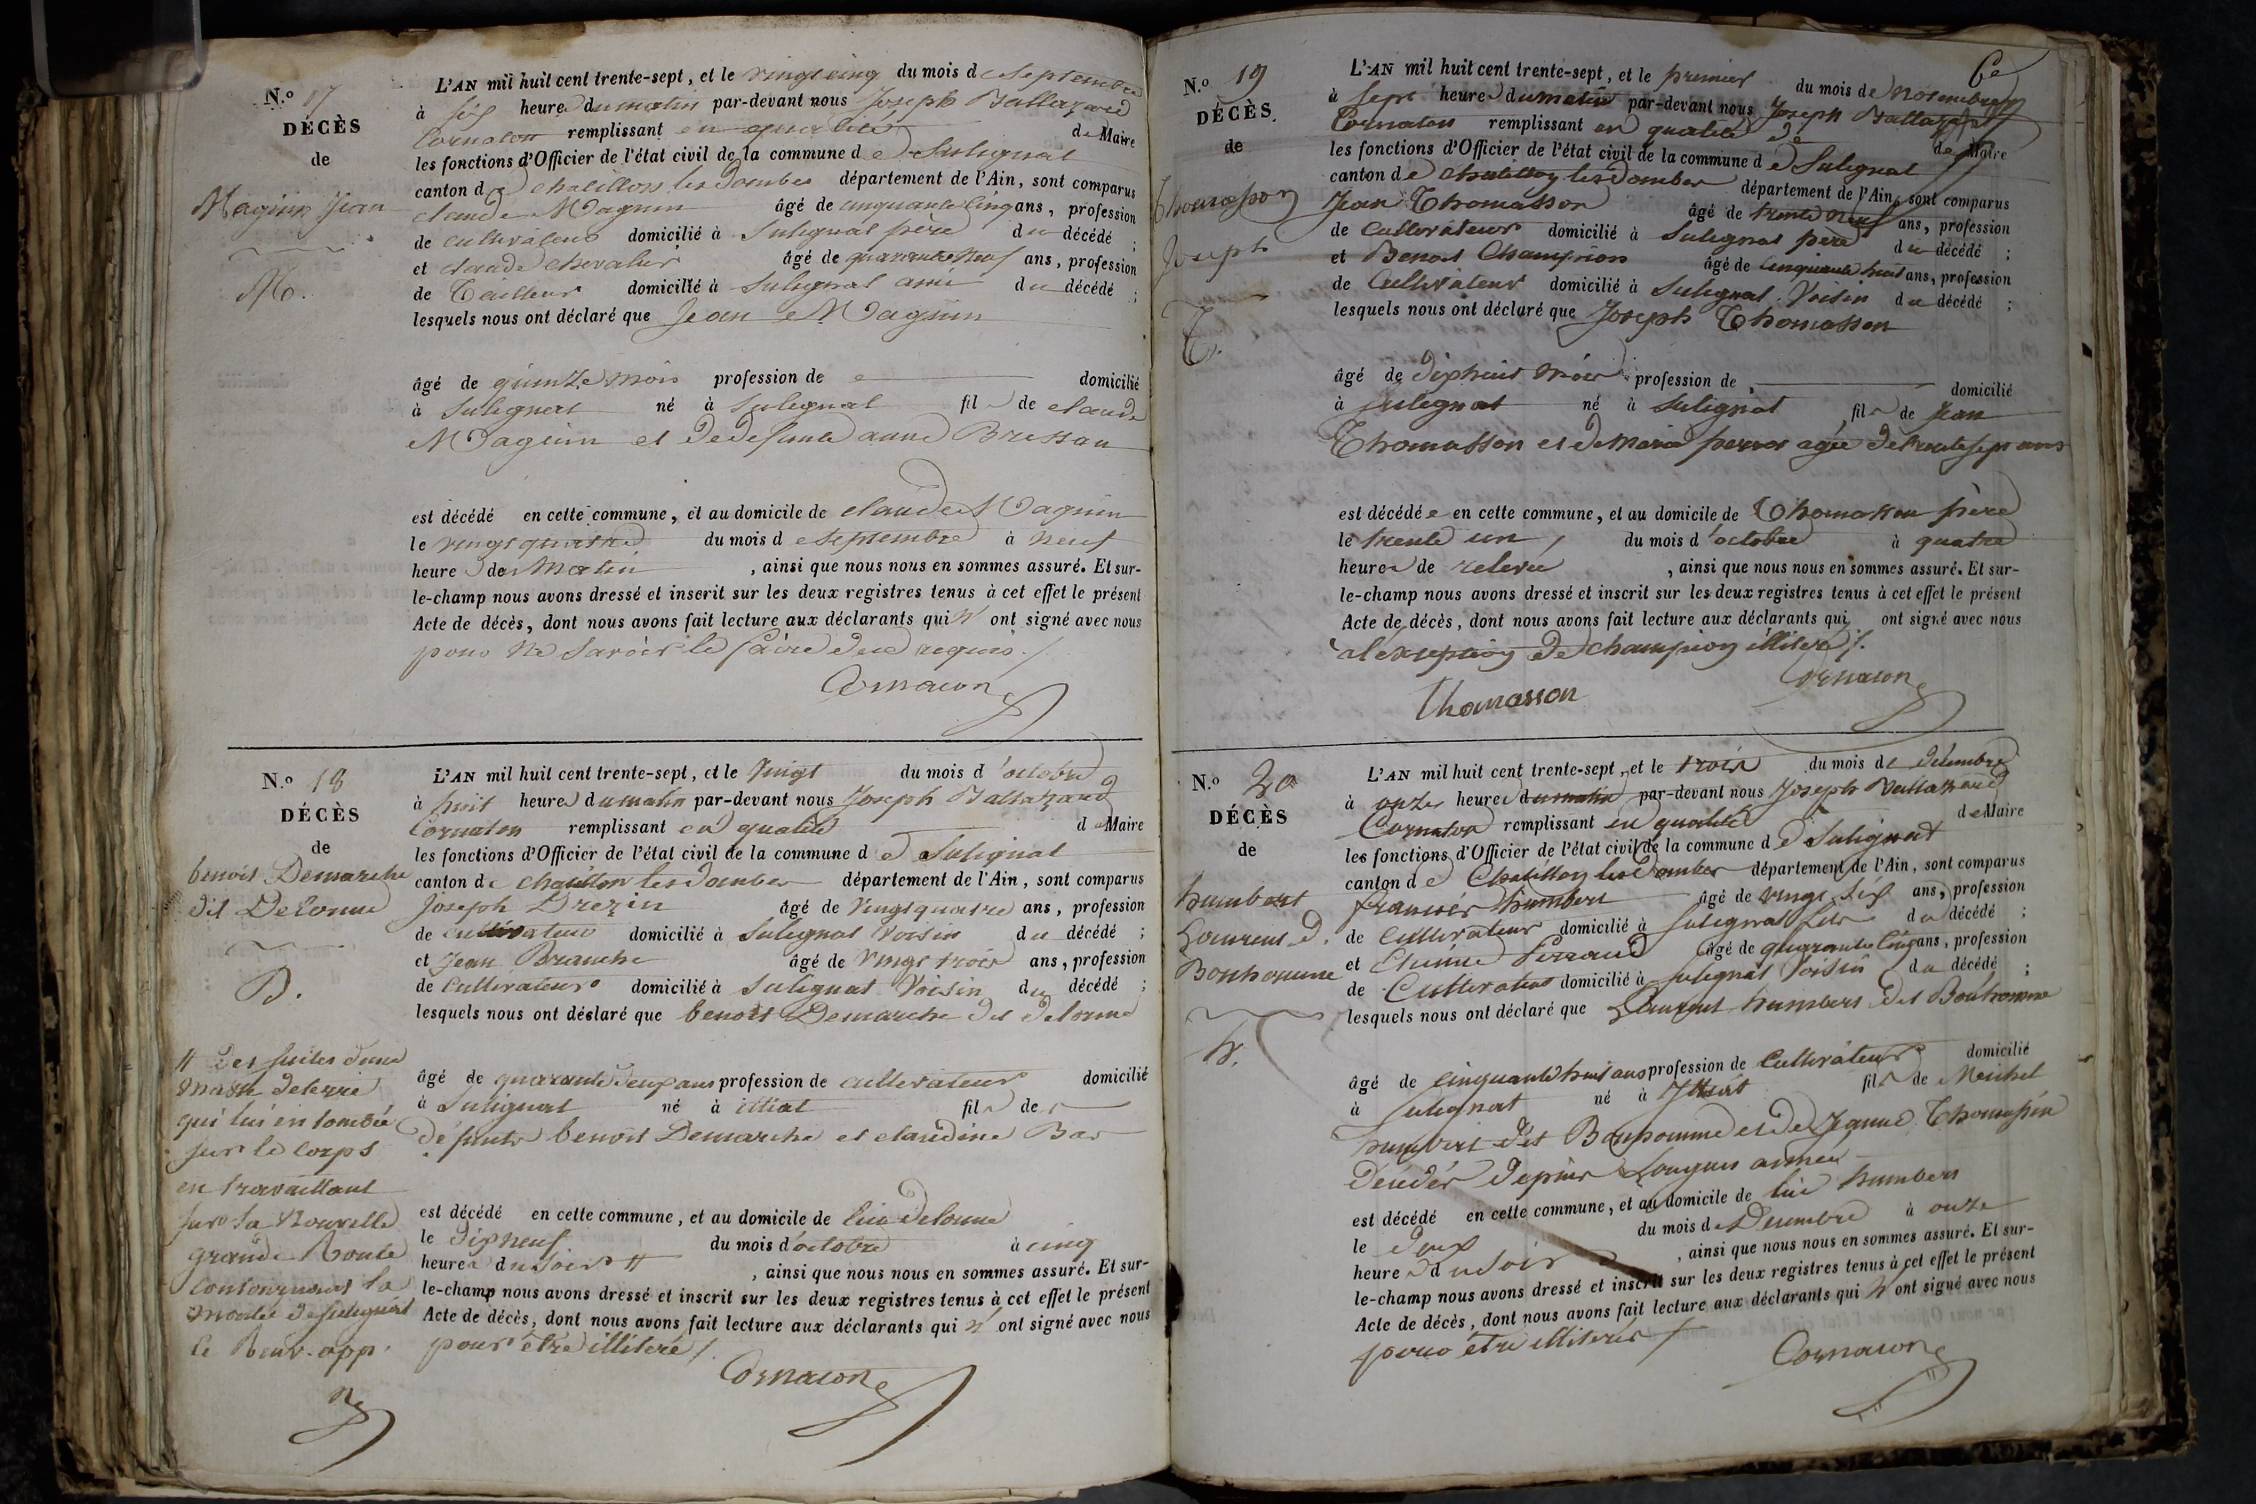 N.º 17
DÉCÈS
de
Magnin Jean
M.
L'AN mil huit cent trente-sept, et le vingt cinq du mois de septembre
à six heures du matin par-devant nous Joseph Baltazard
Cornaton remplissant en qualité de Maire
les fonctions d'Officier de l'état civil de la commune de Sulignat
canton de chatillon les dombes département de l'Ain, sont comparus
claude Magnin âgé de cinquante cinq ans, profession
de cultivateur domicilié à Sulignat père du décédé ;
et claude chevalier âgé de quarante neuf ans, profession
de Tailleur domicilié à Sulignat ami du décédé ;
lesquels nous ont déclaré que Jean Magnin
âgé de quinze mois profession de domicilié
à Sulignat né à Sulignat fils de claude
Magnin et de defunte anne Bressan
est décédé en cette commune, et au domicile de claude Magnin
le vingt quatre du mois de septembre à neuf
heures du Matin , ainsi que nous nous en sommes assuré. Et sur-
le-champ nous avons dressé et inscrit sur les deux registres tenus à cet effet le présent
Acte de décès, dont nous avons fait lecture aux déclarants qui n' ont signé avec nous
pour ne savoir le faire de ce requis ./
Cornaton
N.º 18
DÉCÈS
de
benoit Demarche
dit Delorme
B.
L'AN mil huit cent trente-sept, et le vingt du mois d'octobre
à huit heures du matin par-devant nous Joseph Baltazard
Cornaton remplissant en qualité de Maire
les fonctions d'Officier de l'état civil de la commune de Sulignat
canton de chatillon les dombes département de l'Ain, sont comparus
Joseph Drezin âgé de vingt quatre ans, profession
de cultivateur domicilié à Sulignat Voisin du décédé ;
et Jean Branche âgé de vingt trois ans, profession
de cultivateur domicilié à Sulignat Voisin du décédé ;
lesquels nous ont déclaré que benoit Demarche dit delorme
âgé de quarante deux ans profession de cultivateur domicilié
à Sulignat né à illiat fils de
défunts benoit Demarche et claudine Bar
est décédé en cette commune, et au domicile de lui delorme
le dix neuf du mois d'octobre à cinq
heures du soir # , ainsi que nous nous en sommes assuré. Et sur-
le-champ nous avons dressé et inscrit sur les deux registres tenus à cet effet le présent
Acte de décès, dont nous avons fait lecture aux déclarants qui n' ont signé avec nous
pour être illiteré /.
Cornaton
# des suites d'une
masse de terre
qui lui en tombée
sur le corps
en travaillant
sur la nouvelle
grande Route
contournant la
montée de Sulignat
le Renv. app.
N.º 19
DÉCÈS
de
Thomasson
Joseph
T.
6e
L'AN mil huit cent trente-sept, et le premier du mois de novembre
à sept heures du matin par-devant nous Joseph Baltazard
Cornaton remplissant en qualité de de Maire
les fonctions d'Officier de l'état civil de la commune de Sulignat
canton de chatillon les dombes département de l'Ain, sont comparus
Jean Thomasson âgé de trente neuf ans, profession
de cultivateur domicilié à Sulignat père du décédé ;
et Benoit Champion âgé de cinquante huit ans, profession
de cultivateur domicilié à Sulignat Voisin du décédé ;
lesquels nous ont déclaré que Joseph Thomasson
âgé de dix huit mois profession de domicilié
à Sulignat né à Sulignat fils de Jean
Thomasson et de Marie perret agée de trente sept ans
est décédé en cette commune, et au domicile de Thomasson père
le trente un du mois d'octobre à quatre
heures de relevée , ainsi que nous nous en sommes assuré. Et sur-
le-champ nous avons dressé et inscrit sur les deux registres tenus à cet effet le présent
Acte de décès, dont nous avons fait lecture aux déclarants qui ont signé avec nous
à l'exception de champion illiteré /.
Thomasson
Cornaton
N.º 20
DÉCÈS
de
humbert
Laurent d.
Bonhomme
h.
L'AN mil huit cent trente-sept, et le trois du mois de décembre
à onze heures du matin par-devant nous Joseph Baltazard
Cornaton remplissant en qualité de Maire
les fonctions d'Officier de l'état civil de la commune de Sulignat
canton de Chatillon les Dombes département de l'Ain, sont comparus
francois humbert âgé de vingt six ans, profession
de cultivateur domicilié à Sulignat fils du décédé ;
et Etienne Ferraud âgé de quarante cinq ans, profession
de Cultivateur domicilié à Sulignat Voisin du décédé ;
lesquels nous ont déclaré que Laurent humbert dit Bonhomme
âgé de cinquante huit ans profession de Cultivateur domicilié
à Sulignat né à Illiat fils de Michel
humbert dit Bonhomme et de Jeanne Thomassin
décédés depuis Longues années
est décédé en cette commune, et au domicile de lui humbert
le deux du mois de Décembre à onze
heures du soir , ainsi que nous nous en sommes assuré. Et sur-
le-champ nous avons dressé et inscrit sur les deux registres tenus à cet effet le présent
Acte de décès, dont nous avons fait lecture aux déclarants qui n' ont signé avec nous
pour être illiterés /
Cornaton